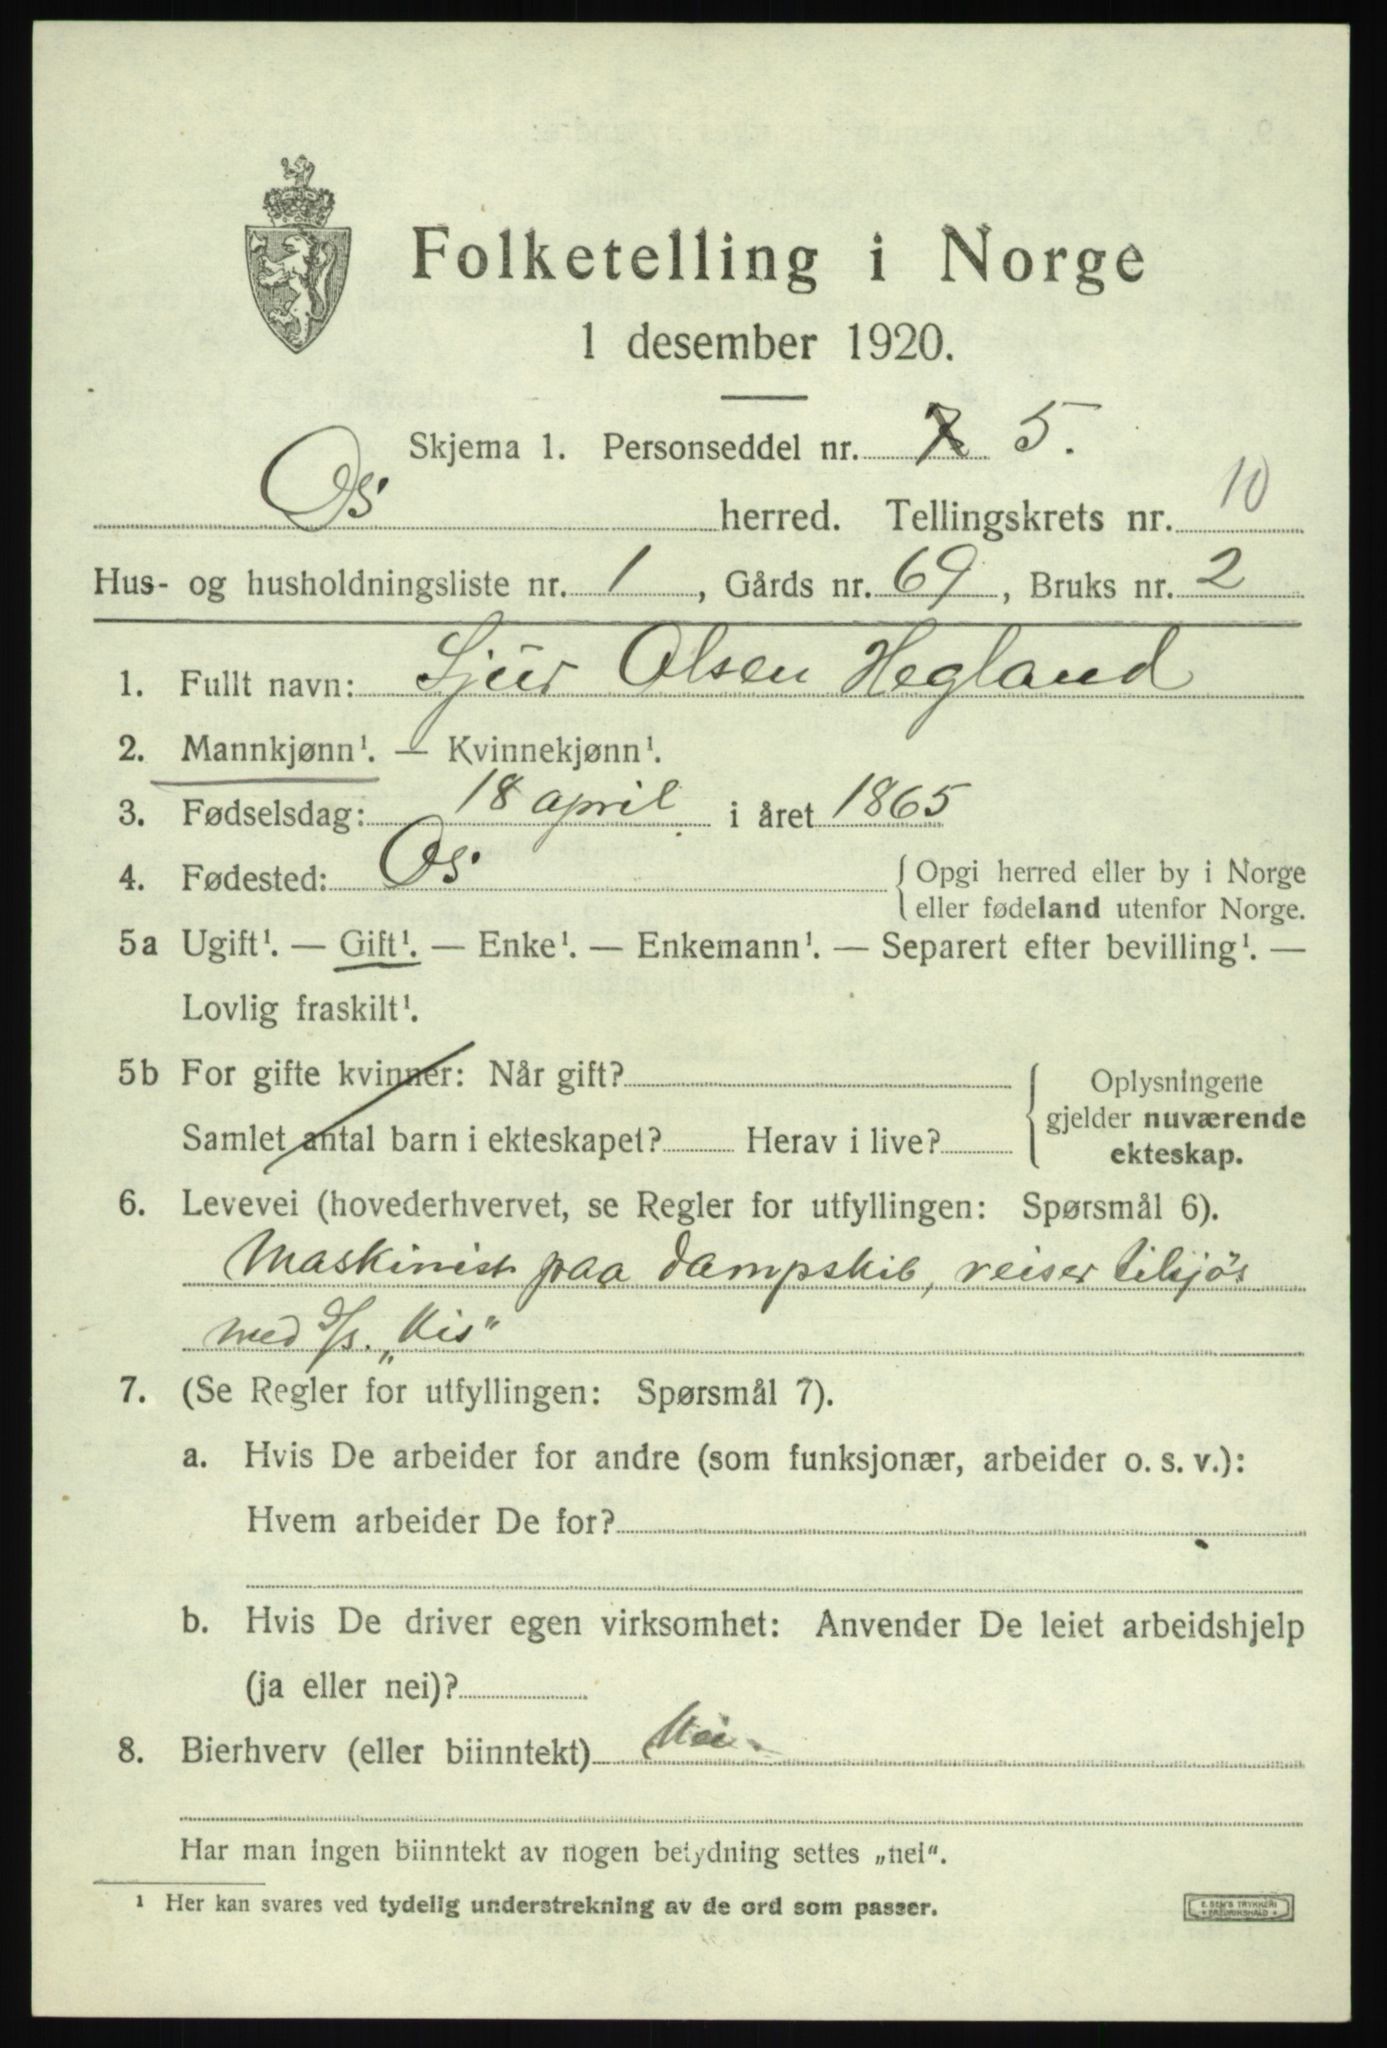 Folketelling i Norge
1 desember 1920.
Skjema 1. Personseddel nr. 5.
Os herred. Tellingskrets nr. 10
Hus- og husholdningsliste nr. 1, Gårds nr. 69, Bruks nr. 2
1. Fullt navn: Sjur Olsen Hegland
2. Mannkjønn¹. — Kvinnekjønn¹.
3. Fødselsdag: 18 april i året 1865
4. Fødested: Os { Opgi herred eller by i Norge
eller fødeland utenfor Norge.
5a Ugift¹. — Gift¹. — Enke¹. — Enkemann¹. — Separert efter bevilling¹. —
Lovlig fraskilt¹.
5b For gifte kvinner: Når gift?
Samlet antal barn i ekteskapet? Herav i live?
Oplysningene
gjelder nuværende
ekteskap.
6. Levevei (hovederhvervet, se Regler for utfyllingen: Spørsmål 6).
Maskinist paa Dampskib, reiser tilsjøs
med d/s. „Kis"
7. (Se Regler for utfyllingen: Spørsmål 7).
a. Hvis De arbeider for andre (som funksjonær, arbeider o. s. v.):
Hvem arbeider De for?
b. Hvis De driver egen virksomhet: Anvender De leiet arbeidshjelp
(ja eller nei)?
8. Bierhverv (eller biinntekt) Nei
Har man ingen biinntekt av nogen betydning settes „nei".
¹ Her kan svares ved tydelig understrekning av de ord som passer.
E. SEM'S TRYKKERI
FREDRIKSHALD